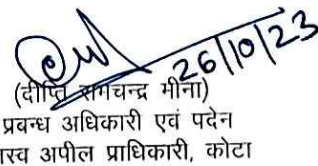 26/10/23
(दीप्ति रामचन्द्र मीना)
प्रबन्ध अधिकारी एवं पदेन
स्व अपील प्राधिकारी, कोटा